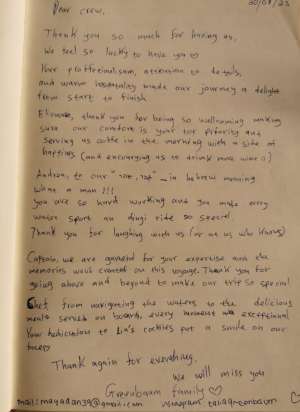 30/08/23
Dear crew,
Thank you so much for having us,
We feel so lucky to have you ♡
Your proffetionalism, attention to details,
and warm made our journey a delight
from start to finish
thank you for being so wellcoming making
sure our comfort is your top priority and
serving us coffe in the morning with a side of
happines (and encurging us to drink more wine ☺)
to our in hebrew meaning
what a man !!!
you are so hard working and you make every
water sport an dingi ride so special
Thank you for laughing with us (or at us who knows)
Captain, we are grateful for your expertise and the
memories we've created on this voyage. Thank you for
going above and beyond to make our trip so special
Chef, from navigating the waters to the delicious
meals served on board, every moment was exceptional
Your dedication to cockies put a smile on our
faces
Thank again for everything
We will miss you
Greenbaum family ♡